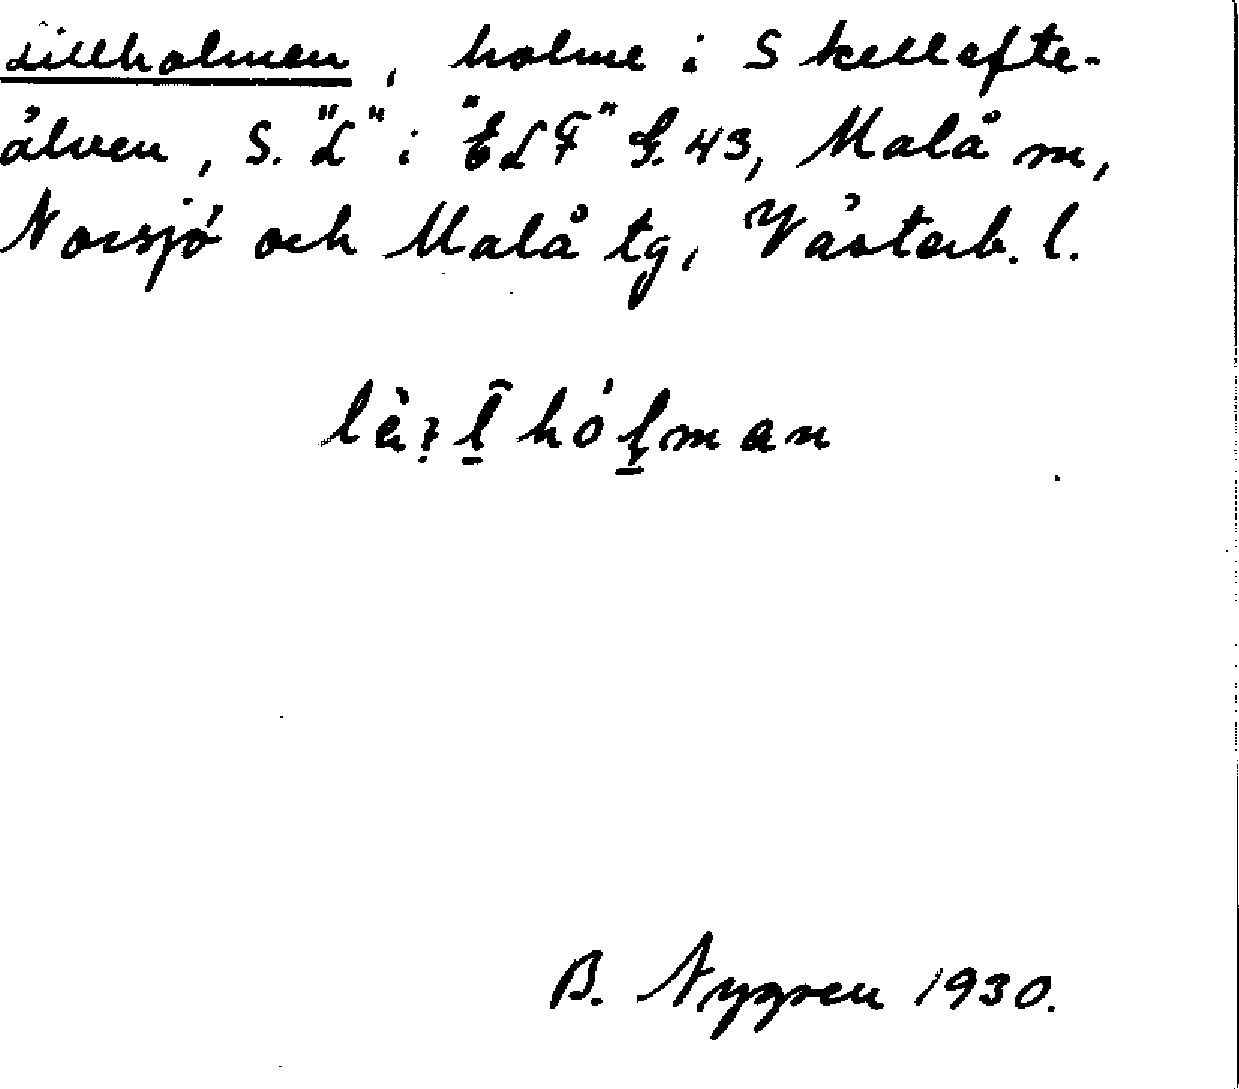 Lillholmen, holme i Skellefte-
älven, S. "L" i "ELF" G. 43, Malå m,
Norsjö och Malå tg, Västerb. l.
B. Nygren 1930.